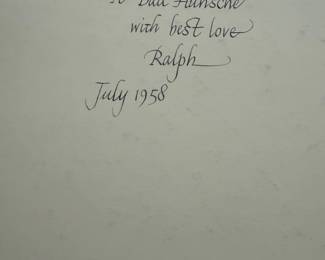 To Dad Hunsche
with best love
Ralph
July 1958